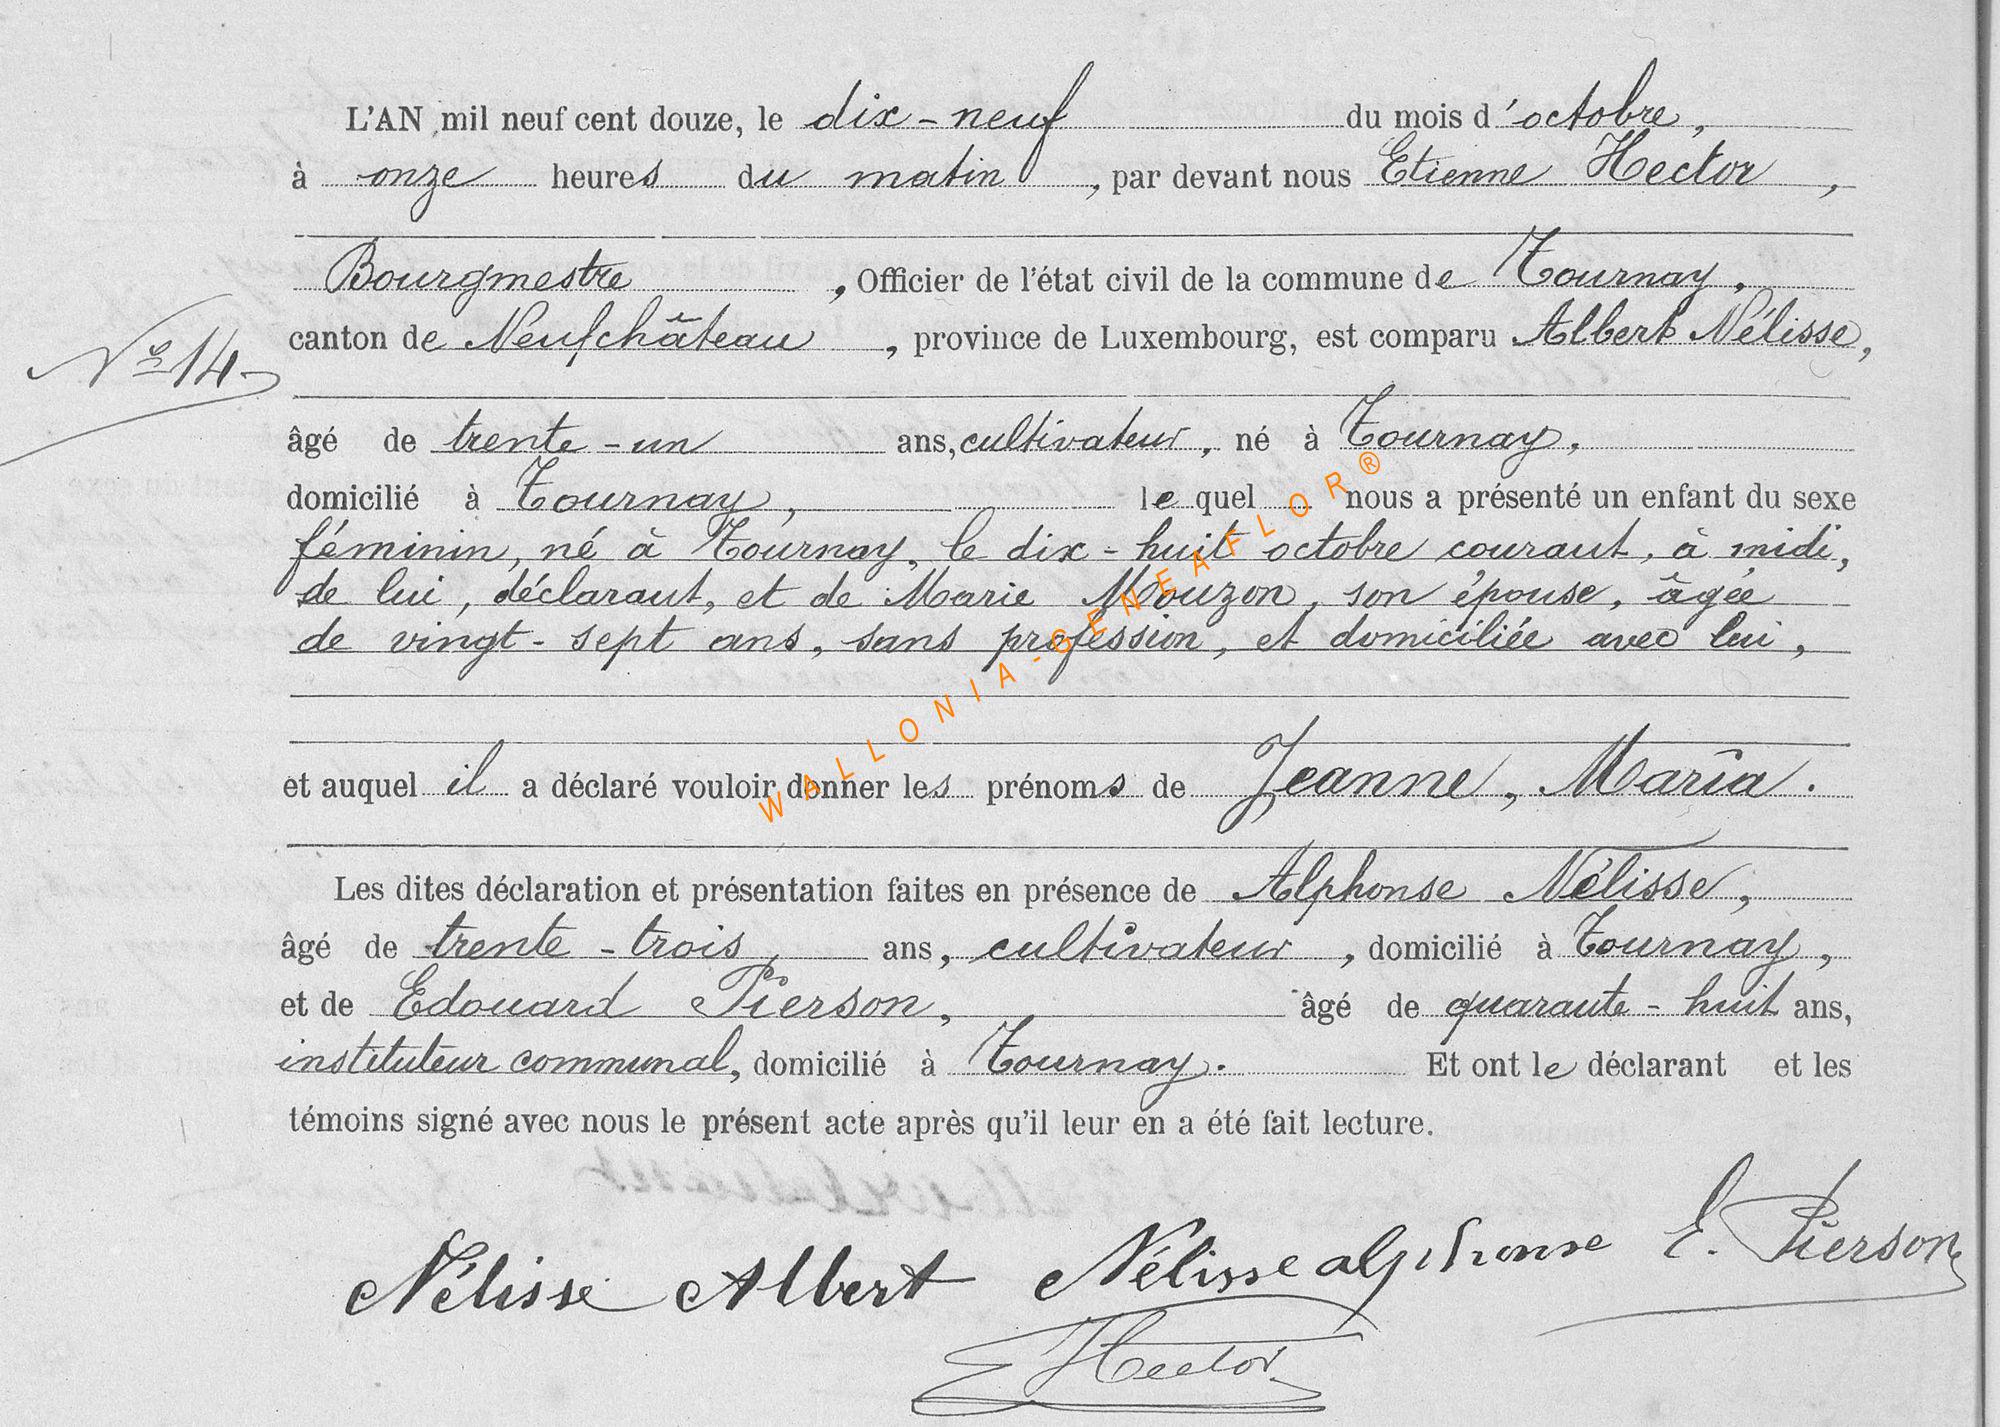 L'AN mil neuf cent douze, le dix-neuf du mois d'octobre,
à onze heures du matin, par devant nous Etienne Hector,
Bourgmestre, Officier de l'état civil de la commune de Tournay,
canton de Neufchâteau, province de Luxembourg, est comparu Albert Nélisse,
N° 14
âgé de trente-un ans, cultivateur, né à Tournay,
domicilié à Tournay, lequel nous a présenté un enfant du sexe
féminin, né à Tournay, le dix-huit octobre courant, à midi,
de lui, déclarant, et de Marie Mouzon, son épouse, âgée
de vingt-sept ans, sans profession, et domiciliée avec lui,
et auquel il a déclaré vouloir donner les prénoms de Jeanne, Maria.
Les dites déclaration et présentation faites en présence de Alphonse Nélisse,
âgé de trente-trois ans, cultivateur, domicilié à Tournay,
et de Edouard Pierson, âgé de quarante-huit ans,
instituteur communal, domicilié à Tournay. Et ont le déclarant et les
témoins signé avec nous le présent acte après qu'il leur en a été fait lecture.
Nélisse Albert Nélisse alphonse E. Pierson
E Hector
WALLONIA-GENEAFLOR®